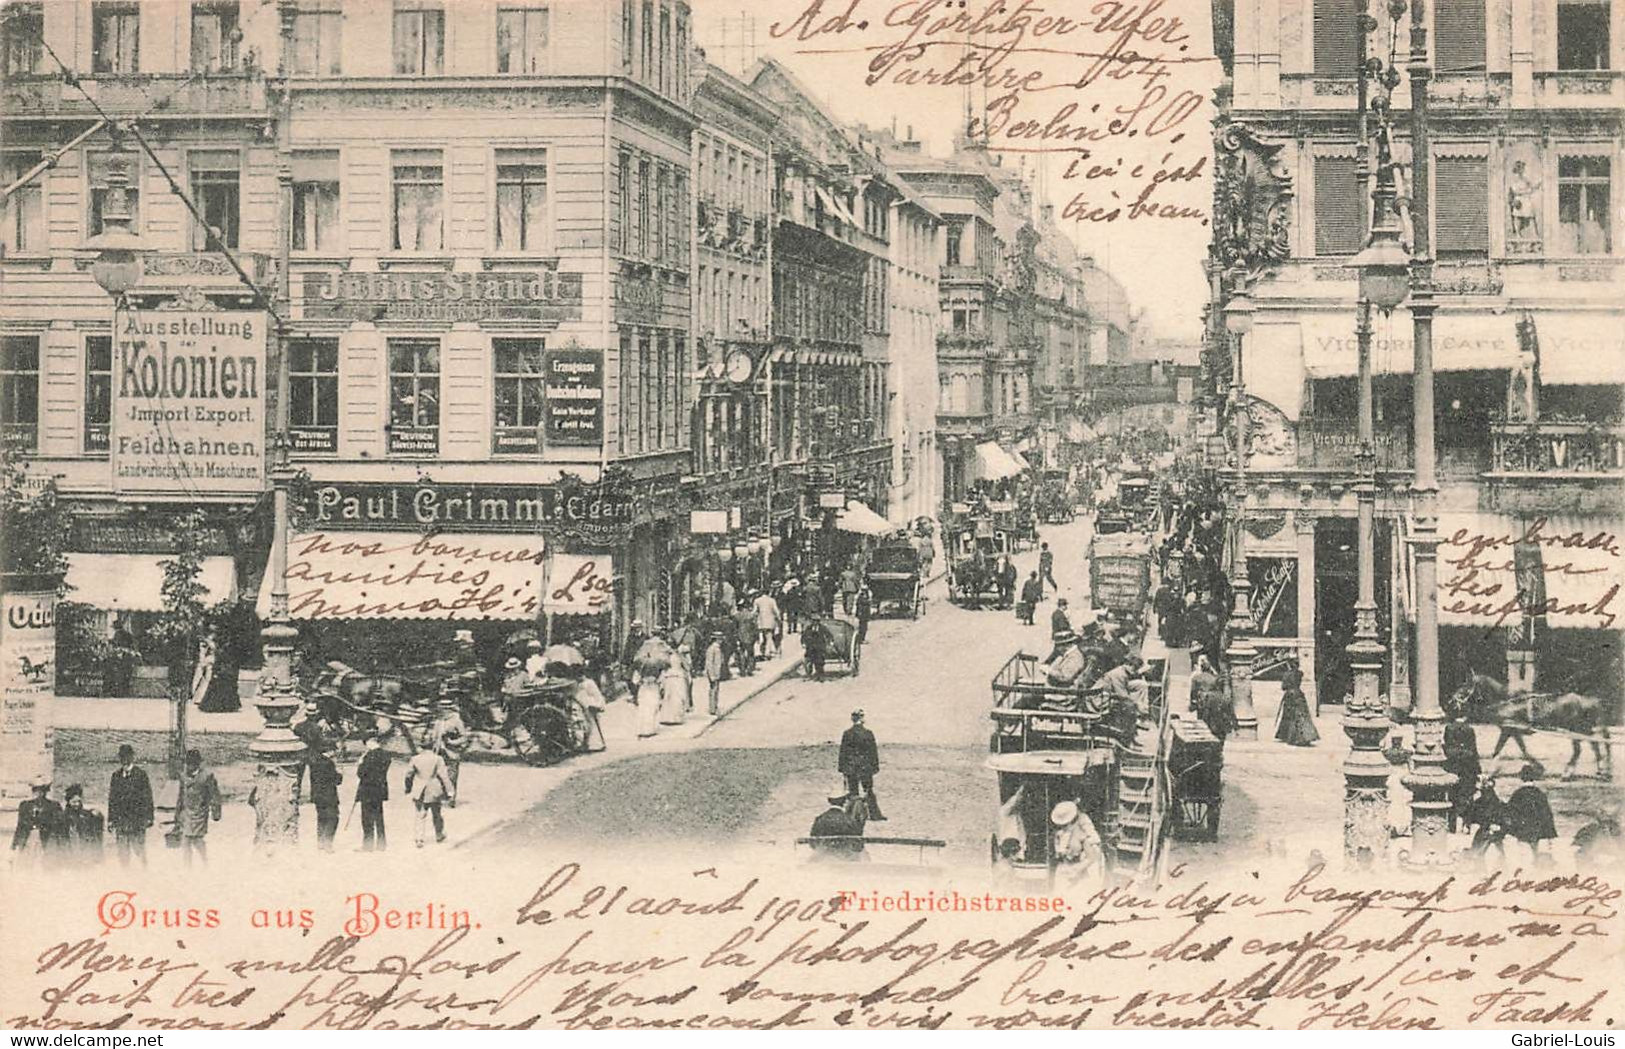 Ad. Görlitzer-Ufer.
Parterre 24
Berlin S.O.
ici c'est
très beau.
Julius Staudt
Ausstellung
der
Kolonien
Import Export.
Feldbahnen,
Landwirtschaftliche Maschinen.
Erzeugnisse
aus
Deutschen Kolonien
Kein Verkauf
Eintritt frei.
DEUTSCH
OST-AFRIKA
DEUTSCH
SÜDWEST-AFRIKA
AUSSTELLUNG
VICTORIA CAFÉ
VICTOR
VICTORIA CAFÉ
V I
Paul Grimm. Cigarr
Import
Odo
nos bonnes
amitiés
embrasse
bien
les
enfants
Gruss aus Berlin.
Friedrichstrasse.
le 21 août 1902
J'ai déjà beaucoup d'ouvrage
Merci mille fois pour la photographie des enfants qui m'a
fait très plaisir. Nous sommes bien installés ici et
nous nous plaisons beaucoup écris nous bientôt. Hélène Paash.
Gabriel-Louis
delcampe.net